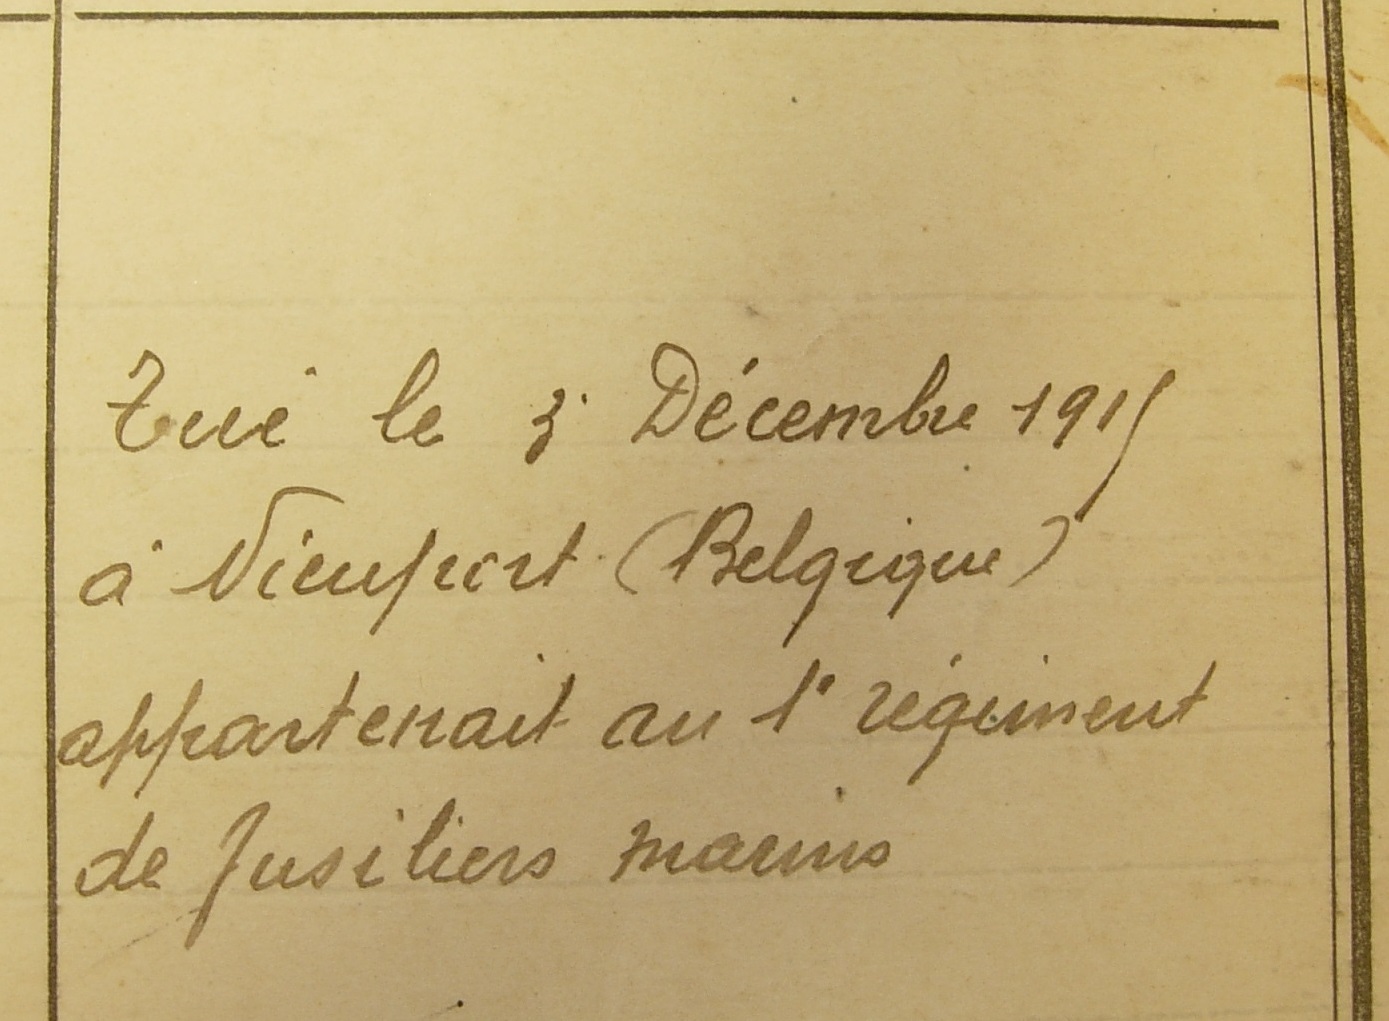 Tué le 3 Décembre 1915
à Nieuport (Belgique)
appartenait au 1° régiment
de fusiliers marins